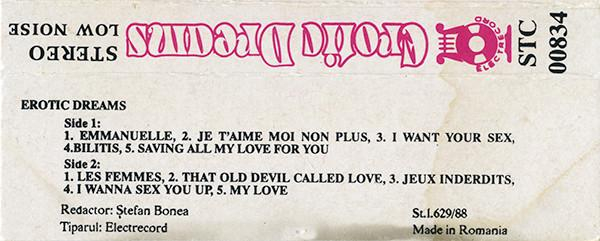 STEREO
LOW NOISE
Erotic Dreams
ELECTRECORD
STC
00834
EROTIC DREAMS
Side 1:
1. EMMANUELLE, 2. JE T'AIME MOI NON PLUS, 3. I WANT YOUR SEX,
4.BILITIS, 5. SAVING ALL MY LOVE FOR YOU
Side 2:
1. LES FEMMES, 2. THAT OLD DEVIL CALLED LOVE, 3. JEUX INDERDITS,
4. I WANNA SEX YOU UP, 5. MY LOVE
Redactor: Ștefan Bonea
St.I.629/88
Tiparul: Electrecord
Made in Romania